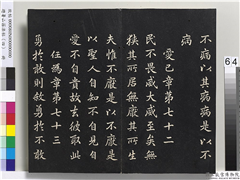 不病以其病病是以不
病
愛己章第七十二
民不畏威大威至矣無
狹其所居無厭其所生
夫惟不厭是以不厭是
以聖人自知不自見自
愛不自貴故去彼取此
任爲章第七十三
勇於敢則殺勇於不敢
64